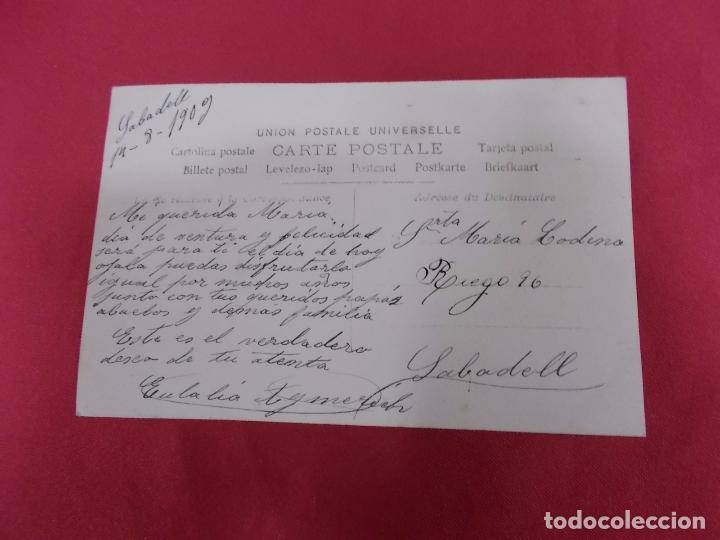 Sabadell
14-8-1909
UNION POSTALE UNIVERSELLE
Cartolina postale CARTE POSTALE Tarjeta postal
Billete postal Levelezo-lap Postcard Postkarte Briefkaart
Adresse du Destinataire
Mi querida Maria:
día de ventura y felicidad
será para ti el día de hoy
ojala puedas disfrutarlo
igual por muchos años
junto con tus queridos papás
abuelos y demás familia
Este es el verdadero
deseo de tu atenta
Eulalia Aymerich
Srta
María Codina
Riego 96
Sabadell
todocoleccion
todocoleccion.net